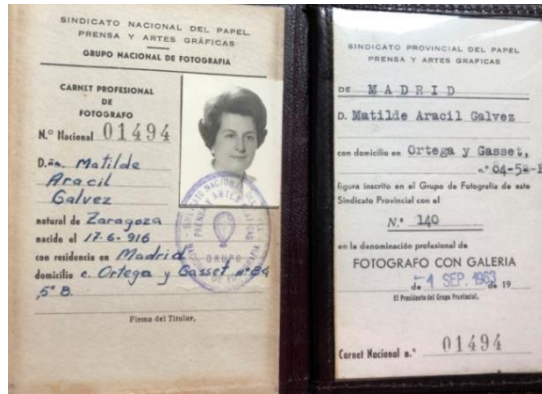 SINDICATO NACIONAL DEL PAPEL
PRENSA Y ARTES GRÁFICAS
GRUPO NACIONAL DE FOTOGRAFIA
CARNET PROFESIONAL
DE
FOTOGRAFO
N.º Nacional 01494
D.ña. Matilde
Aracil
Galvez
natural de Zaragoza
nacido el 17-6-916
con residencia en Madrid-
domicilio c. Ortega y Gasset, nº 84
,5º B.
Firma del Titular,
SINDICATO PROVINCIAL DEL PAPEL
PRENSA Y ARTES GRAFICAS
DE MADRID
D. Matilde Aracil Galvez
con domicilio en Ortega y Gasset,
n.º
figura inscrito en el Grupo de Fotografía de este
Sindicato Provincial con el
N.º 140
en la denominación profesional de
FOTOGRAFO CON GALERIA
de -1 SEP. 1963 de 19
El Presidente del Grupo Provincial,
Carnet Nacional n.º 01494